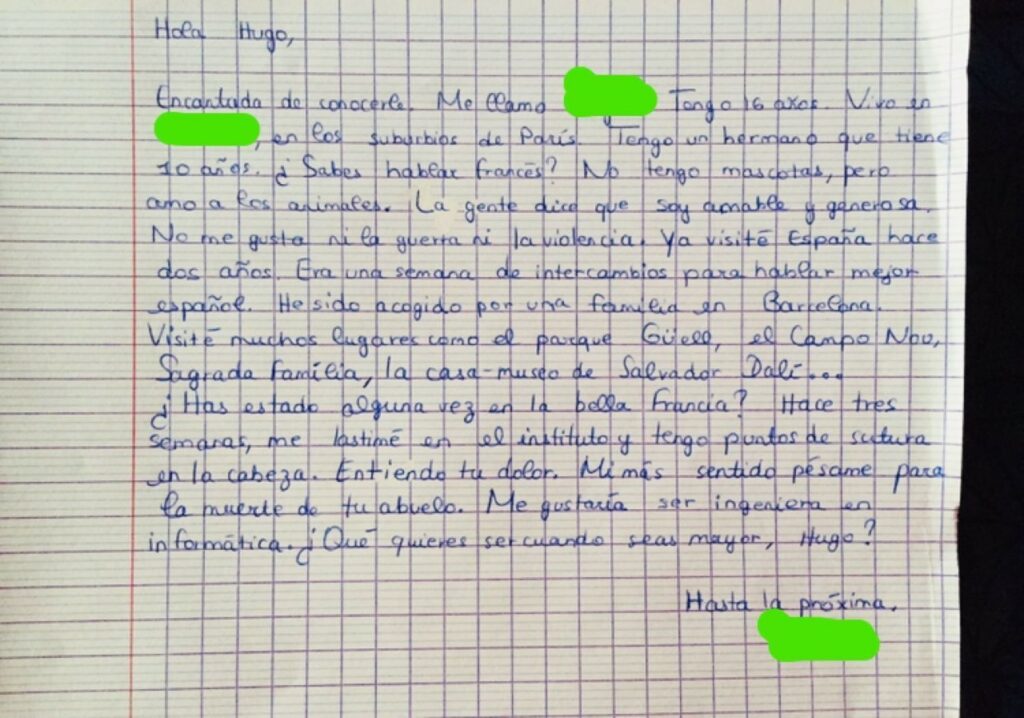 Hola Hugo,
Encantada de conocerle. Me llamo Tengo 16 axos. Vivo en
, en los suburbios de París. Tengo un hermano que tiene
10 años. ¿Sabes hablar francés? No tengo mascotas, pero
amo a los animales. La gente dice que soy amable y generosa.
No me gusta ni la guerra ni la violencia. Ya visité España hace
dos años. Era una semana de intercambios para hablar mejor
español. He sido acogido por una familia en Barcelona.
Visité muchos lugares como el parque Güell, el Campo Nou,
Sagrada Familia, la casa-museo de Salvador Dalí...
¿Has estado alguna vez en la bella Francia? Hace tres
semanas, me lastimé en el instituto y tengo puntos de sutura
en la cabeza. Entiendo tu dolor. Mi más sentido pésame para
la muerte de tu abuelo. Me gustaría ser ingeniera en
informática. ¿Qué quieres ser cuando seas mayor, Hugo?
Hasta la próxima.